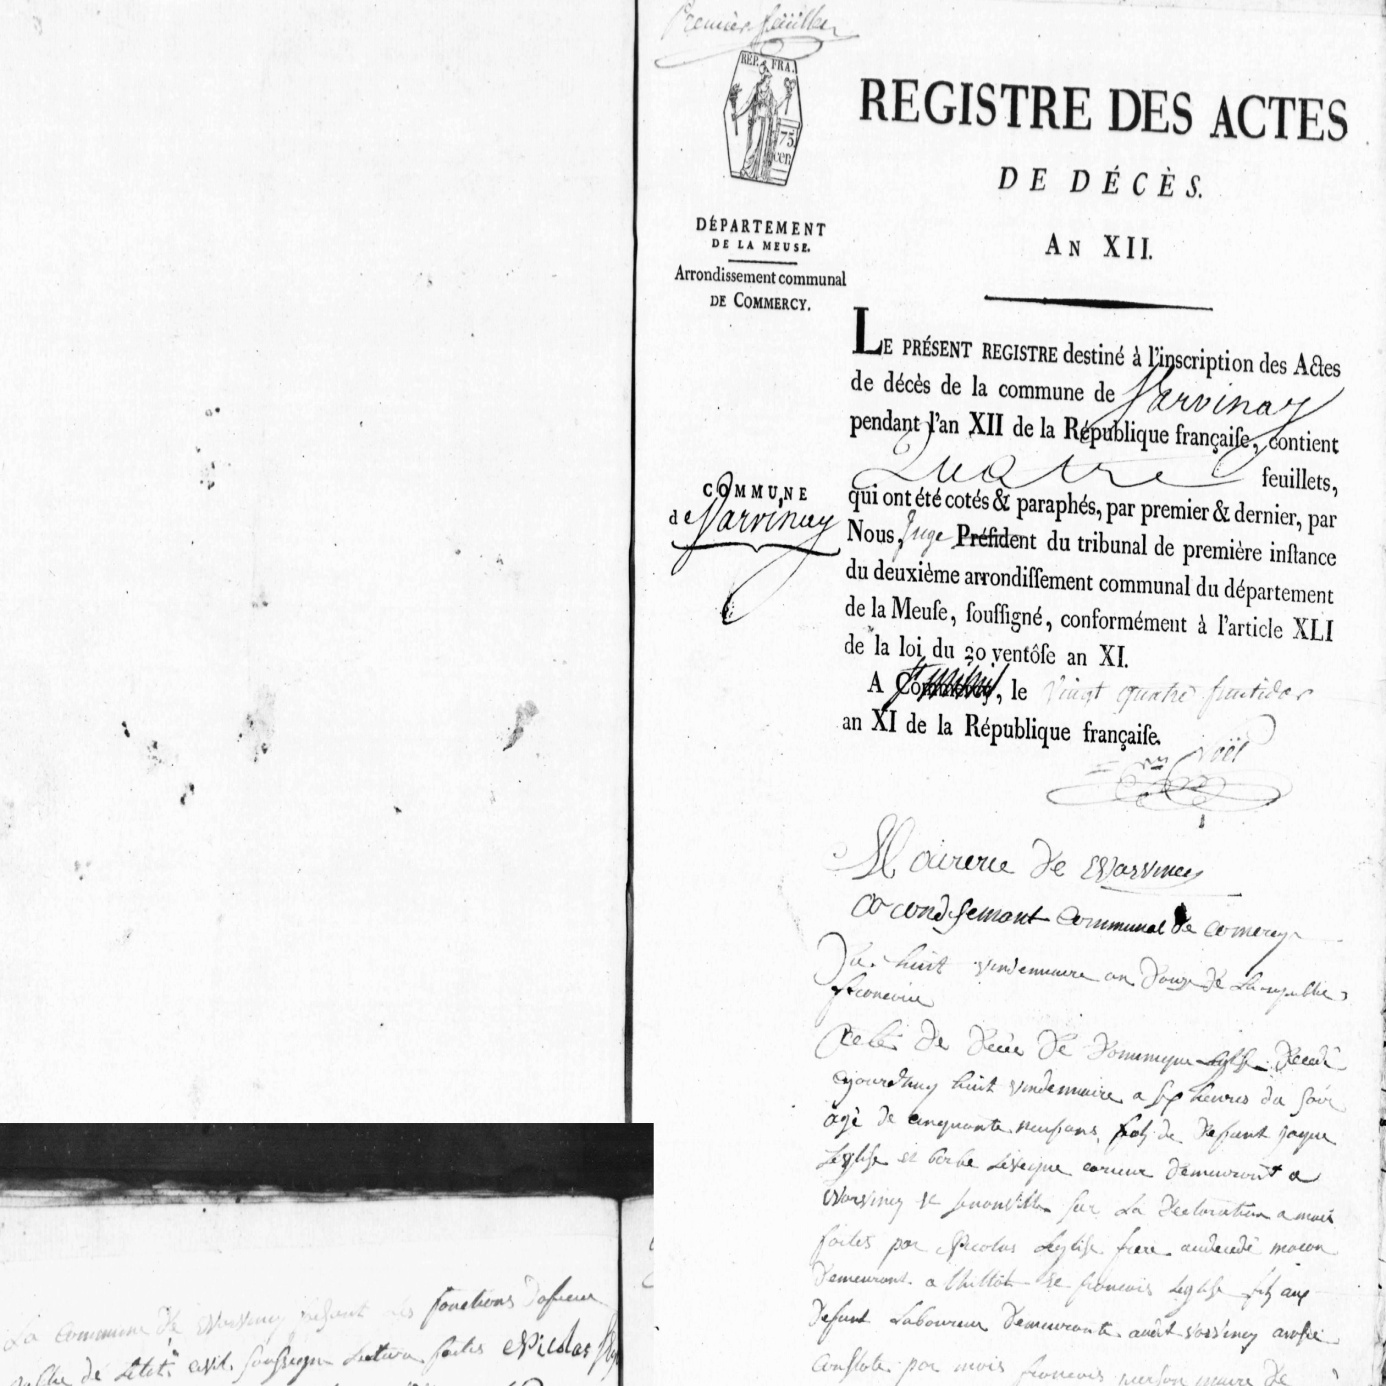 Premier feuillet
RÉP. FRA.
75
cen.
REGISTRE DES ACTES
DE DÉCÈS.
AN XII.
DÉPARTEMENT
DE LA MEUSE.
Arrondissement communal
DE COMMERCY.
LE PRÉSENT REGISTRE destiné à l'inscription des Actes
de décès de la commune de Varvinay
pendant l'an XII de la République françaiſe, contient
Quatre feuillets,
qui ont été cotés & paraphés, par premier & dernier, par
Nous, Juge Préſident du tribunal de première inſtance
du deuxième arrondiſſement communal du département
de la Meuſe, ſouſſigné, conformément à l'article XLI
de la loi du 30 ventôſe an XI.
A Commercy, le vingt quatre fructidor
an XI de la République françaiſe.
COMMUNE
de Varvinay
Noël
Mairerie de Warviney
arondisement communal de Comercy
Du huit vendemiaire an douze de la republic
francoise
Acte de deces de Dominique Leglise decedé
ajourdhuy huit vendemiaire a six heures du soir
agé de cinquante neuf ans, fils de defunt jaque
Leglise et barbe demeurant a
Warviney et sur la declaration a mois
faites par Nicolas Leglise frere audecedé macon
demeurant a et francois Leglise fils aux
defunt Laboureur demeurante audit varviney
Constate par mois francois maire de
La commune de Warviney faisant les fonctions dofficier
public de Letat civil soussigne Lecture faites Nicolas